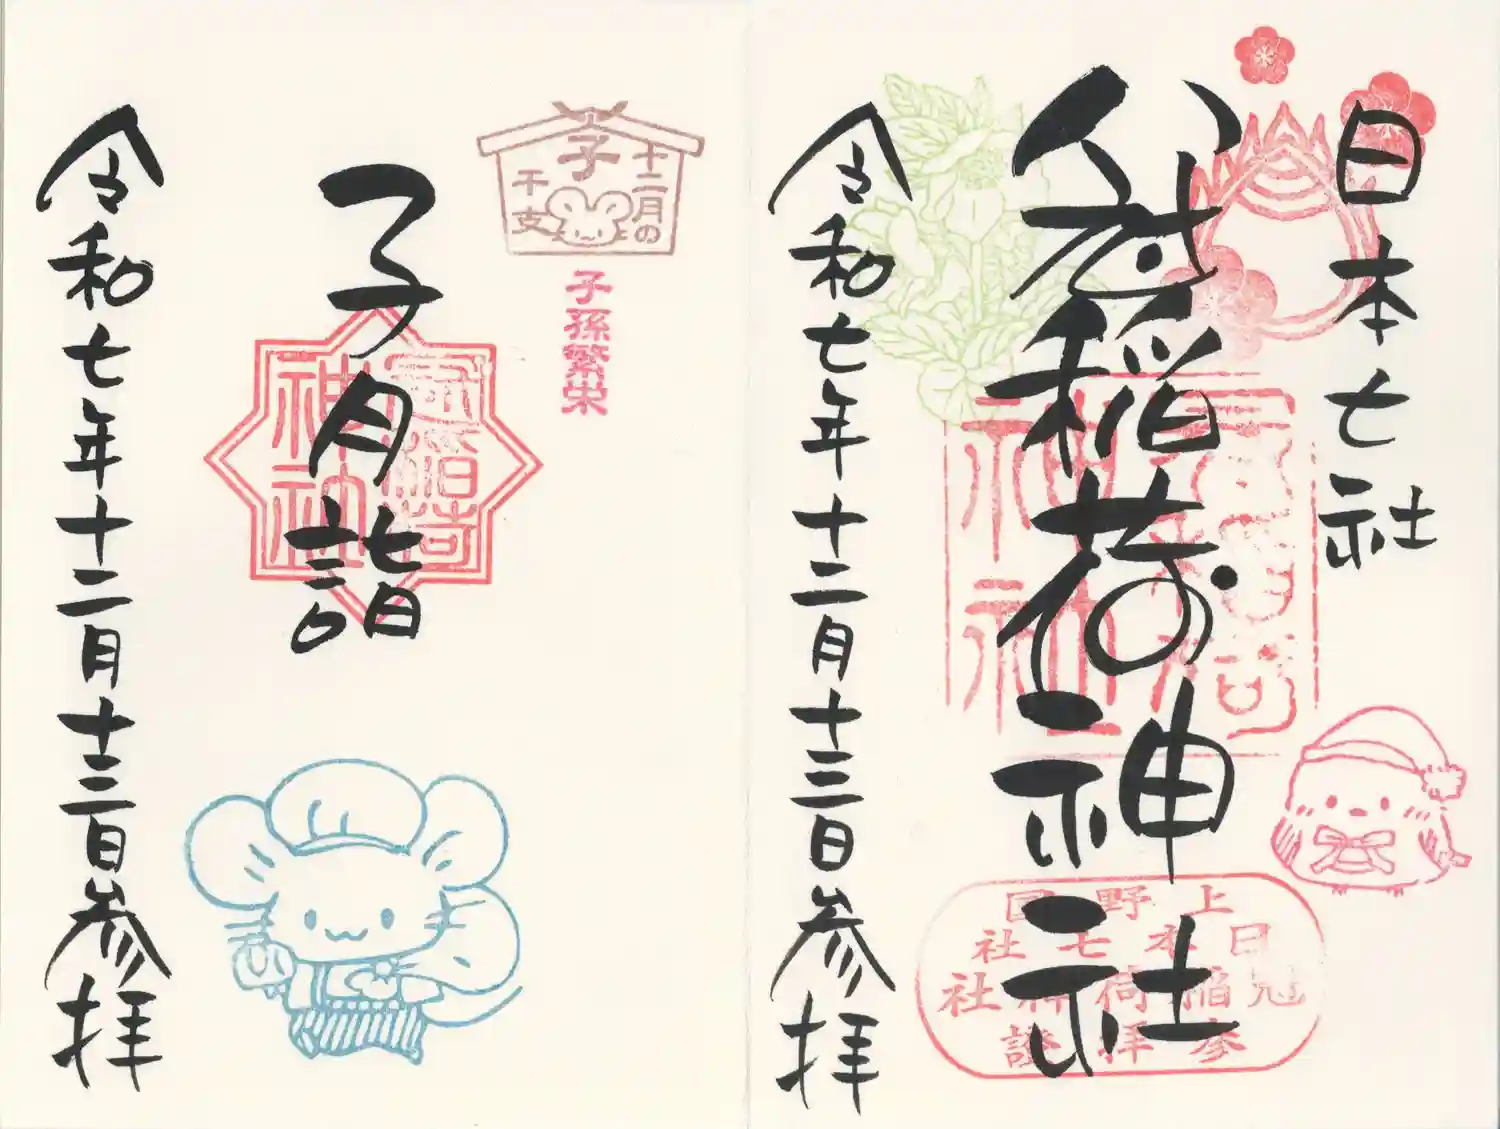 日本七社
冠稲荷神社
令和七年十二月十三日参拝
冠稲荷
神社
上野国
日本七社
冠稲荷神社
参拝證
十二月の
子
干支
子孫繁栄
子月詣
冠稲荷
神社
令和七年十二月十三日参拝